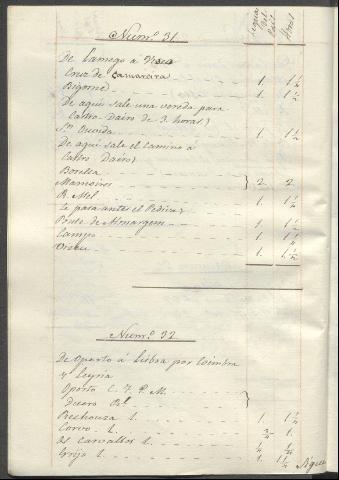 Num.º 31. Leguas del Pais Horas
De Lamego a Viseo
Cruz de Camarara 1. 1 1/4
Bigorne 1. 1 1/2
De aqui sale una vereda para
Castro Dairo de 3. horas)
Sta. Ouvida 1. 1 1/2
De aqui sale el camino á
Castro Dairo)
Mamoiros 2. 2
R. Mel 1. 1 1/2
Ponte de Almargem 1. 1 1/2
Campo 1. 1
Viseu 1. 1
Num.º 32.
De Oporto á Lisboa por Coimbra
y Leyria
Oporto C. F. P. M.
Duero R.l
Rechouza l. 1. 1
Corvo l. 3/4 1.
os Carvallos l. 1/4
Grijo l. 1. 1 1/4
Sigue